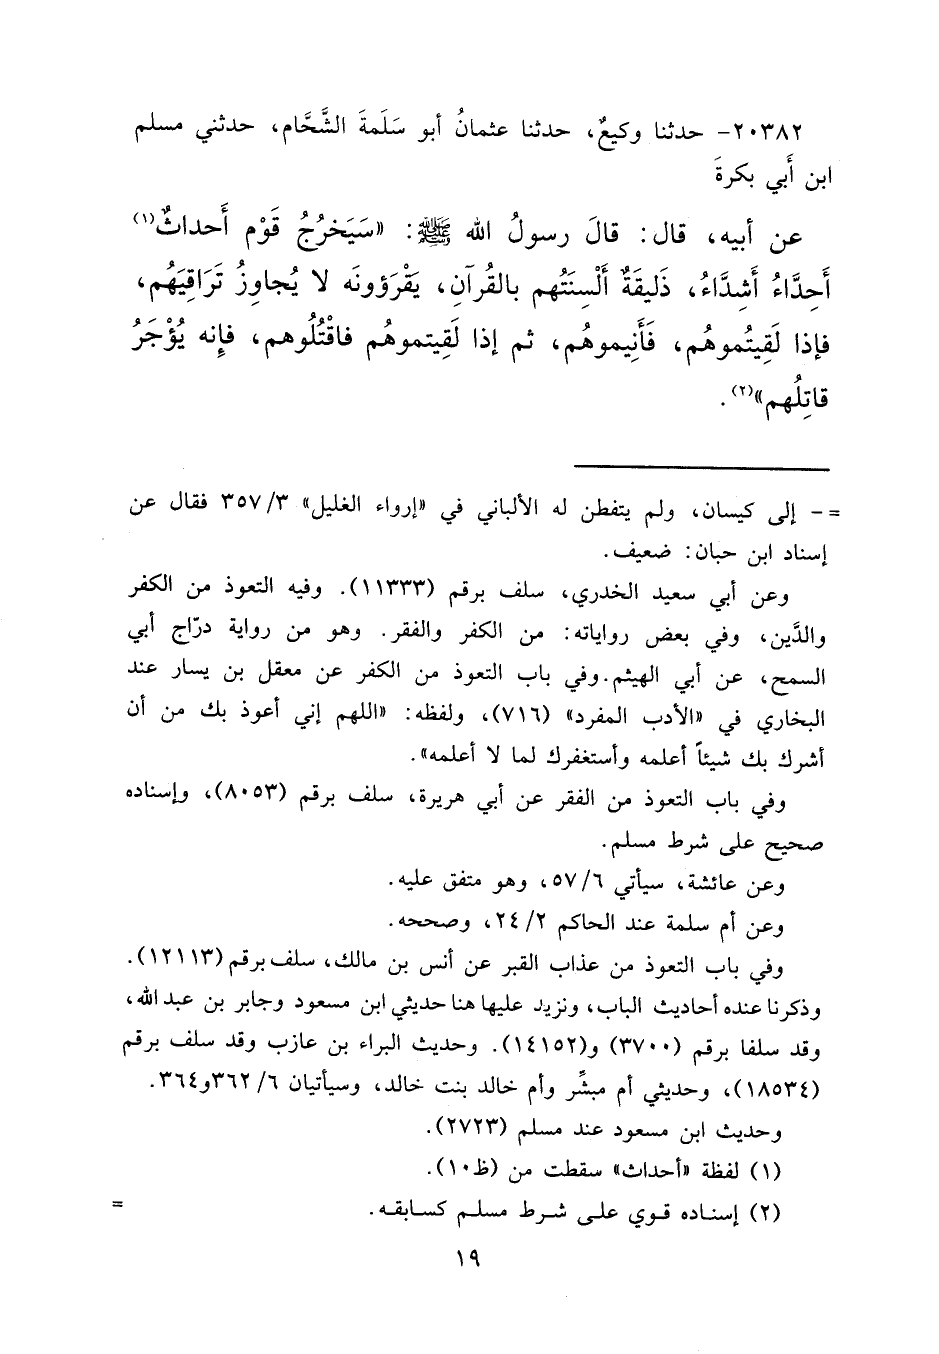 ٢٠٣٨٢- حدثنا وكيعٌ، حدثنا عثمانُ أبو سَلَمةَ الشَّحَّام، حدثني مسلم
ابن أَبي بكرةَ
عن أبيه، قال: قالَ رسولُ الله ﷺ: «سَيَخرُجُ قَوْم أَحداثٌ(١)
أَحِدَّاءُ أَشِدَّاءُ، ذَلِيقَةٌ أَلْسِنَتُهم بالقُرآنِ، يَقْرَؤونَه لا يُجاوِزُ تَرَاقِيَهُم،
فإذا لَقِيتُموهُم، فَأَنِيموهُم، ثم إذا لَقِيتموهُم فاقْتُلُوهم، فإِنه يُؤْجَرُ
قاتِلُهم»(٢).
=- إلى كيسان، ولم يتفطن له الألباني في «إرواء الغليل» ٣٥٧/٣ فقال عن
إسناد ابن حبان: ضعيف.
وعن أبي سعيد الخدري، سلف برقم (١١٣٣٣). وفيه التعوذ من الكفر
والدَّين، وفي بعض رواياته: من الكفر والفقر. وهو من رواية درّاج أبي
السمح، عن أبي الهيثم.وفي باب التعوذ من الكفر عن معقل بن يسار عند
البخاري في «الأدب المفرد» (٧١٦)، ولفظه: «اللهم إني أعوذ بك من أن
أشرك بك شيئاً أعلمه وأستغفرك لما لا أعلمه».
وفي باب التعوذ من الفقر عن أبي هريرة، سلف برقم (٨٠٥٣)، وإسناده
صحيح على شرط مسلم.
وعن عائشة، سيأتي ٥٧/٦، وهو متفق عليه.
وعن أم سلمة عند الحاكم ٢٤/٢، وصححه.
وفي باب التعوذ من عذاب القبر عن أنس بن مالك، سلف برقم (١٢١١٣).
وذكرنا عنده أحاديث الباب، ونزيد عليها هنا حديثي ابن مسعود وجابر بن عبد الله،
وقد سلفا برقم (٣٧٠٠) و(١٤١٥٢). وحديث البراء بن عازب وقد سلف برقم
(١٨٥٣٤)، وحديثي أم مبشِّر وأم خالد بنت خالد، وسيأتيان ٦/ ٣٦٢و٣٦٤.
وحديث ابن مسعود عند مسلم (٢٧٢٣).
(١) لفظة «أحداث» سقطت من (ظ١٠).
(٢) إسناده قوي على شرط مسلم كسابقه. =
١٩